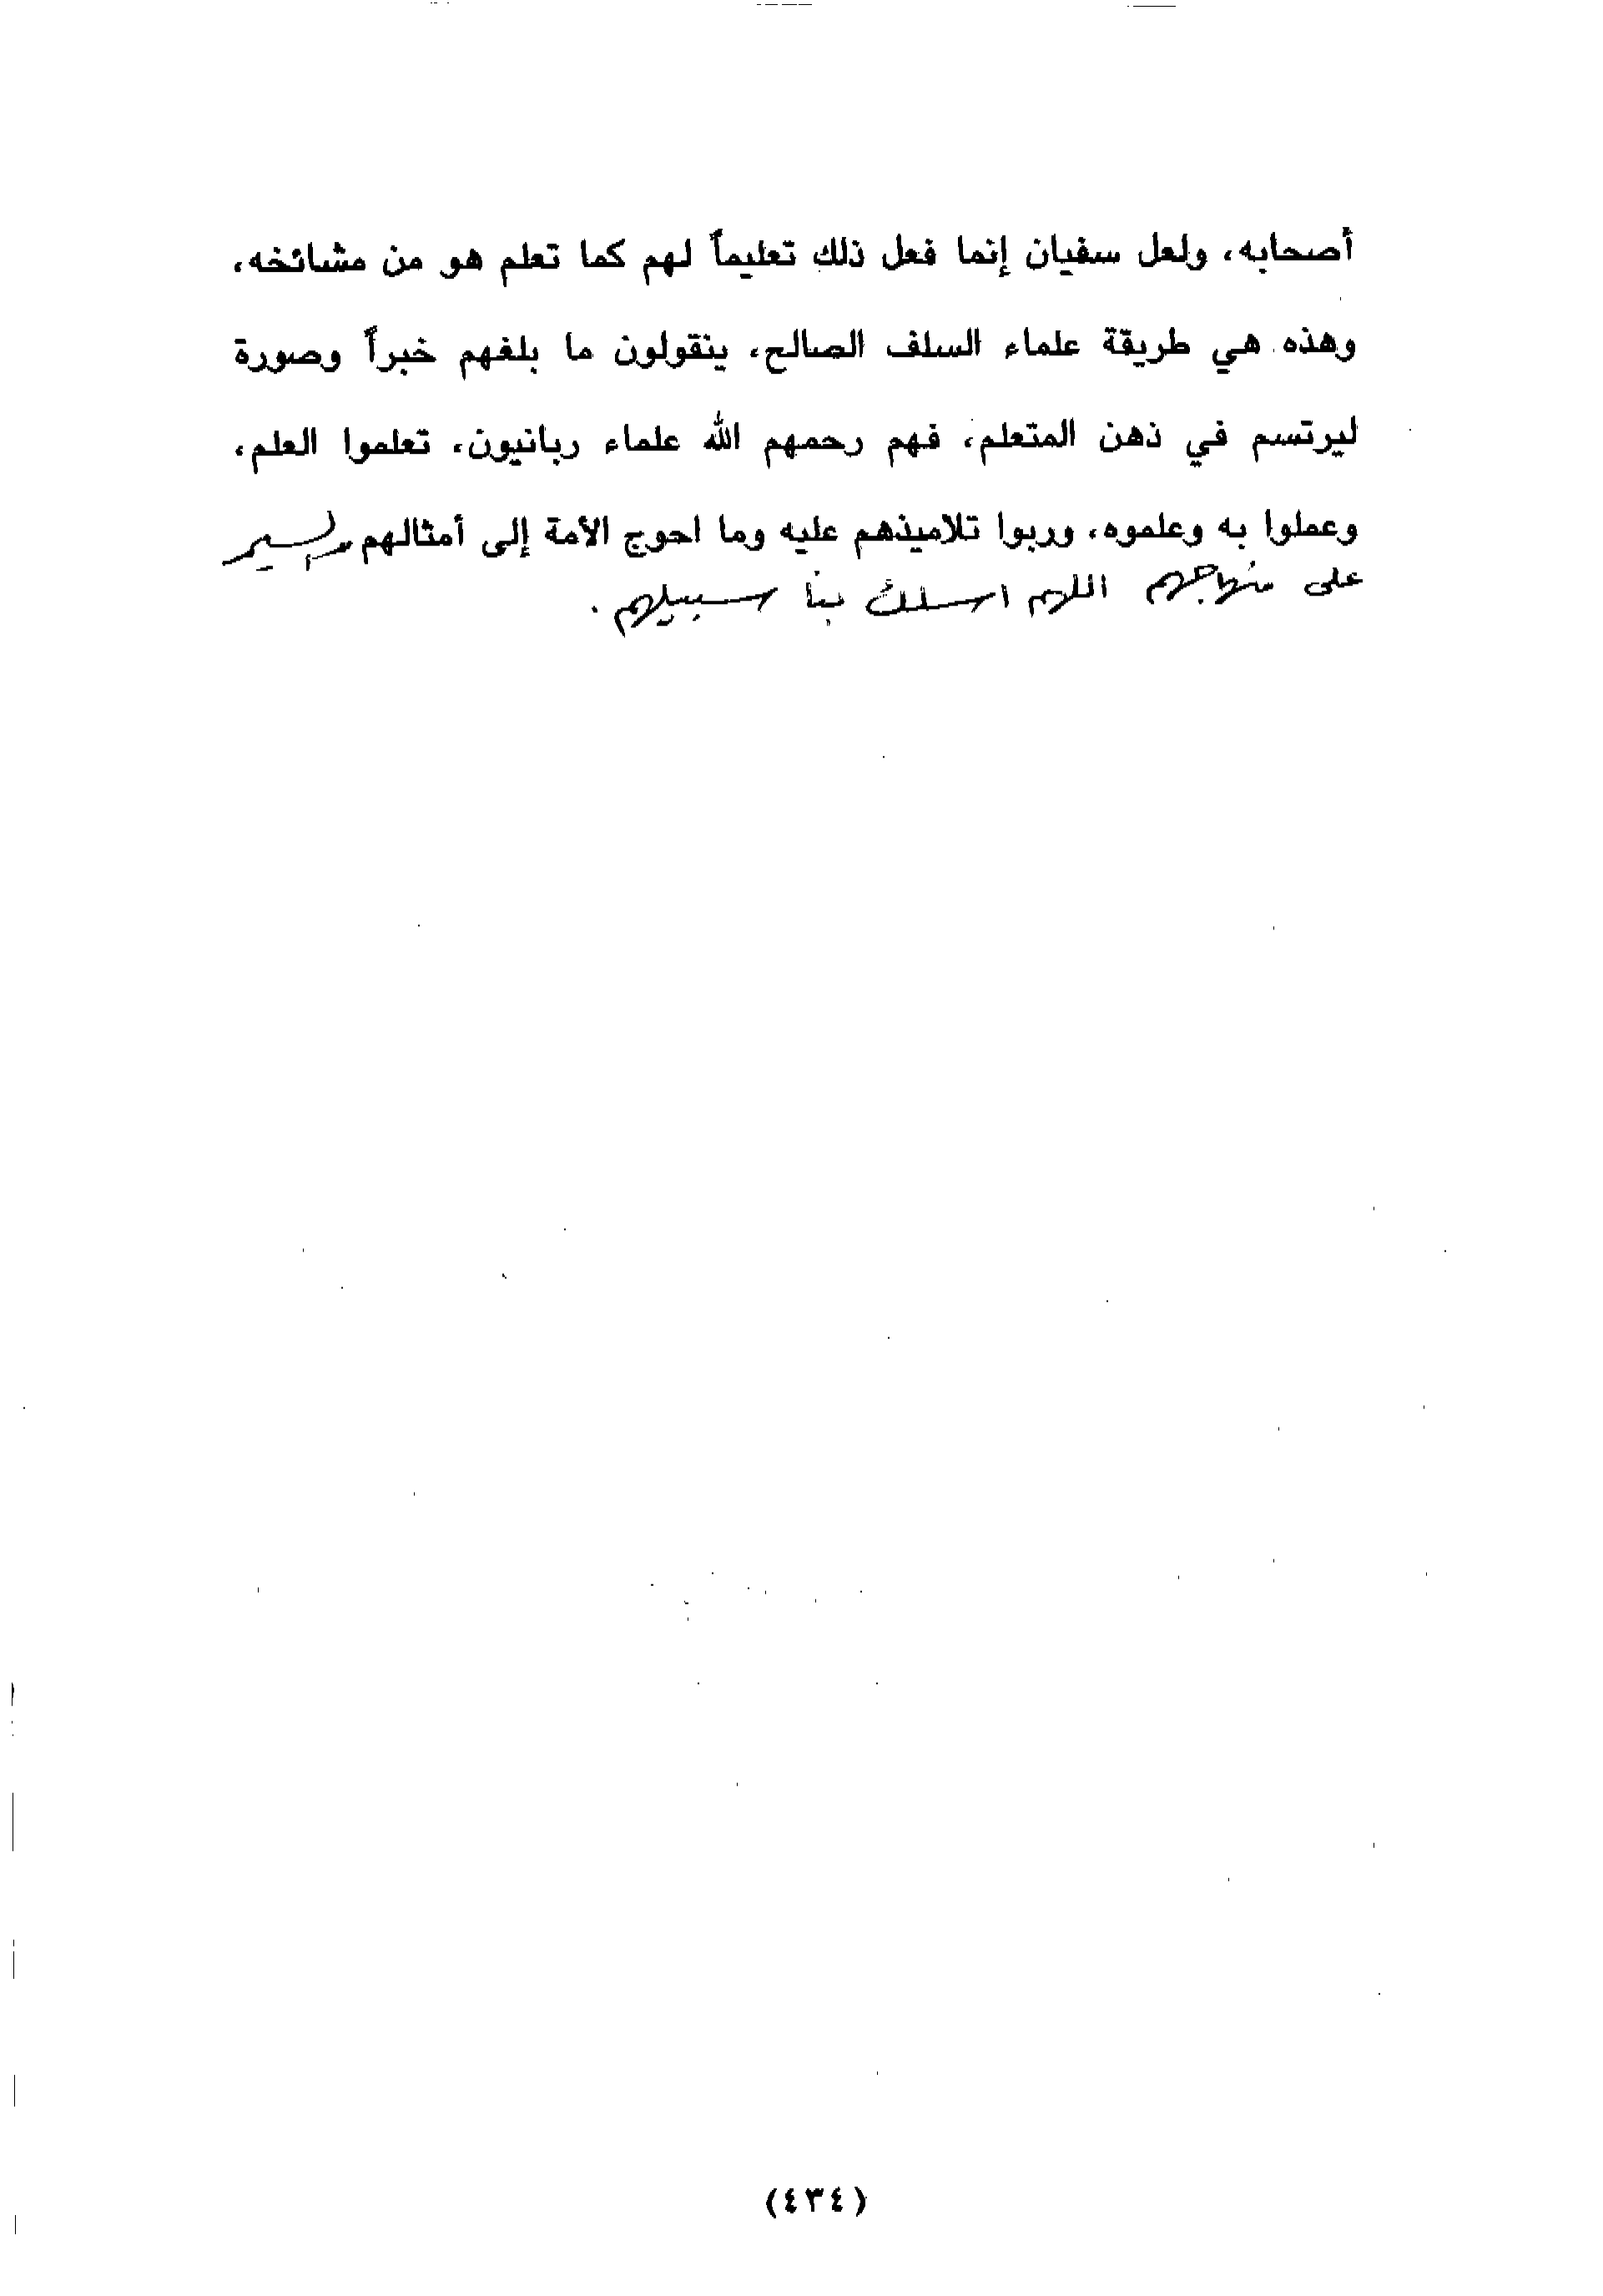 أصحابه، ولعل سفيان إنما فعل ذلك تعليماً لهم كما تعلم هو من مشائخه،
وهذه هي طريقة علماء السلف الصالح، ينقولون ما بلغهم خبراً وصورة
ليرتسم في ذهن المتعلم، فهم رحمهم الله علماء ربانيون، تعلموا العلم،
وعملوا به وعلموه، وربوا تلاميذهم عليه وما احوج الأمة إلى أمثالهم
على منهاجهم اللهم اسلك بنا سبيلهم .
(٤٣٤)